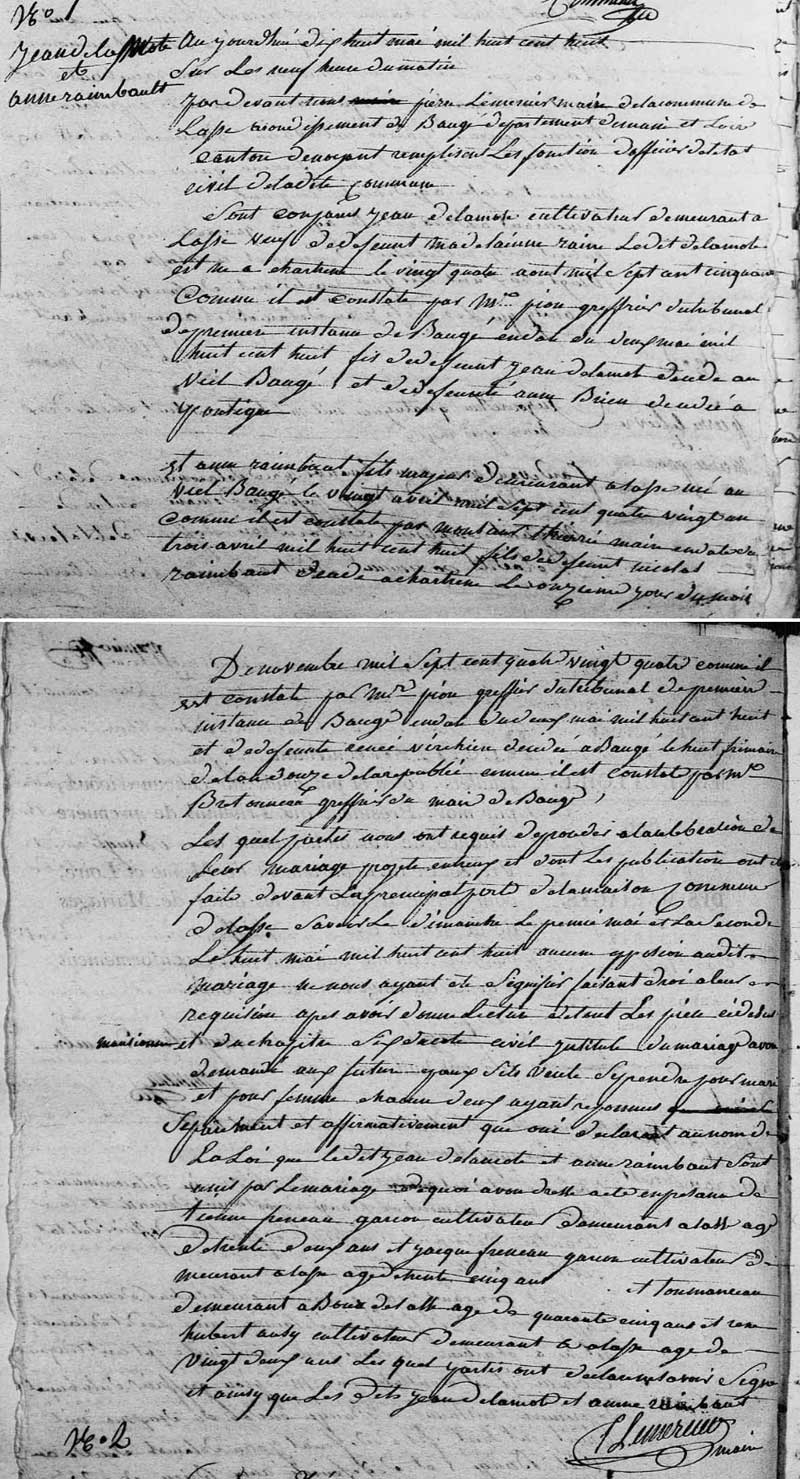 No 1
Jean delaMote
et
anne raimbault
Commune
au jourdhui dix huit mai mil huit cent huit
Sur Les neuf heure du matin
par devant nous pierre Lemercier maire dela commune de
Lasse arondissement de Baugé departement demaine et Loir
Canton denoyant remplisent Les fonction dofficier deletat
civil deladite Commune
Sont Conparus jean delamote cultivateur demeurant a
Lasse veuf dedefeunt madelainne raine Ledet delamote
est ne a chartrené le vingt quatre aout mil Sept cent cinquante
Comme il est constate par Mr. pion greffier dutribunal
depremier instance de Baugé endate du deux mai mil
huit cent huit fis dedefeunt jean delamote decede au
Vieil Baugé et dedefeunte anne Brieu decedée a
pontigne
et anne raimbaut fille majeur demeurant a lasse né au
vieil Baugé le vingt avril mil Sept cent quatre vingt un
comme il est constate par monsieur maire endate du
trois avril mil huit cent huit fille dedefeunt nicolas
raimbaut decede a chartrene Le onzieme jour du mois
De novembre mil Sept cent quatre vingt quatre comme il
est constate par Mr pion greffier dutribunal depremiere
instance de Baugé endate du deux mai mil huit cent huit
et dedefeunte renée verchien decedée a Baugé le huit frimaire
delan douze delarepublic comme il est constate par Mr
Bretonneau greffier du maire de Baugé
Les quel partis nous ont requis deproceder a la celebration de
Leur mariage projeté entreux et dont Les publication ont été
faite devant Laprencipal porte delamaison Commune
delasse Savoir Le dimanche Le premier mai et La Seconde
Le huit mai mil huit cent huit aucune opposion audit
mariage ne nous ayant ete Signifier faisant droi a leur
requision apes avoir donne Lecture detout Les piece cidesus
mansionne et duchapitre Six ducode civil jntitulé dumariage avon
demandé aux futur epoux Sils veule Seprendre pour mari
et pour femme chacun deux ayant reponnus
Sepairment et affirmativement que oui declarant au nom de
La Loi que ledit jean delamote et anne raimbaut Sont
unis par Lemariage dequoi avon dresse acte enpresance de
tienne freneau garcon cultivateur demeurant a lasse agé
detrente deux ans et jacque freneau garcon cultivateur de
meurant a lasse age detrente cinq ans et
demeurant a Boux delasse age de quarante cinq ans et rene
hubert ausy cultivateur demeurant a lasse age de
vingt deux ans Les quel partis ont declare ne Savoir Signe
et ainsy que Les dits jean delamote et anne raimbaut
P Lemercier
maire
No 2